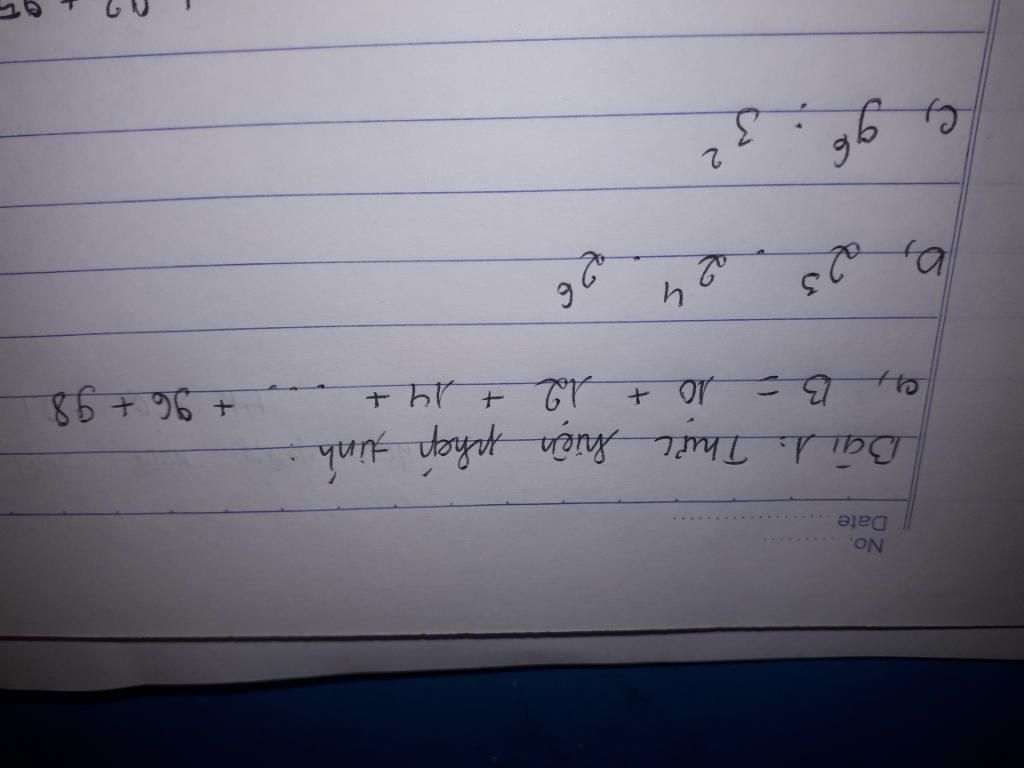 No. ..........
Date ....................
Bài 1: Thực hiện phép tính:
a, B = 10 + 12 + 14 + ... + 96 + 98
b, 2³ . 2⁴ . 2⁶
c, 9⁶ : 3²